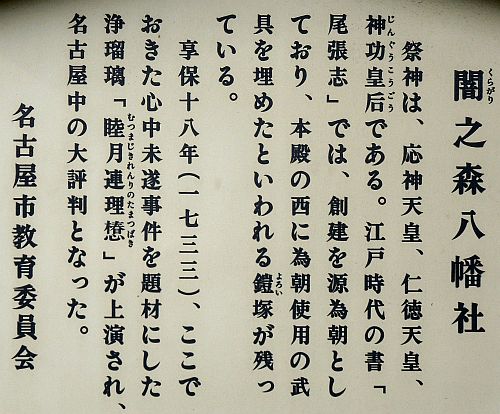 くらがり
闇之森八幡社
祭神は、応神天皇、仁徳天皇、
じんぐうこうごう
神功皇后である。江戸時代の書「
尾張志」では、創建を源為朝とし
ており、本殿の西に為朝使用の武
よろい
具を埋めたといわれる鎧塚が残っ
ている。
享保十八年(一七三三)、ここで
おきた心中未遂事件を題材にした
むつまじきれんりのたまつばき
浄瑠璃「睦月連理」が上演され、
名古屋中の大評判となった。
名古屋市教育委員会